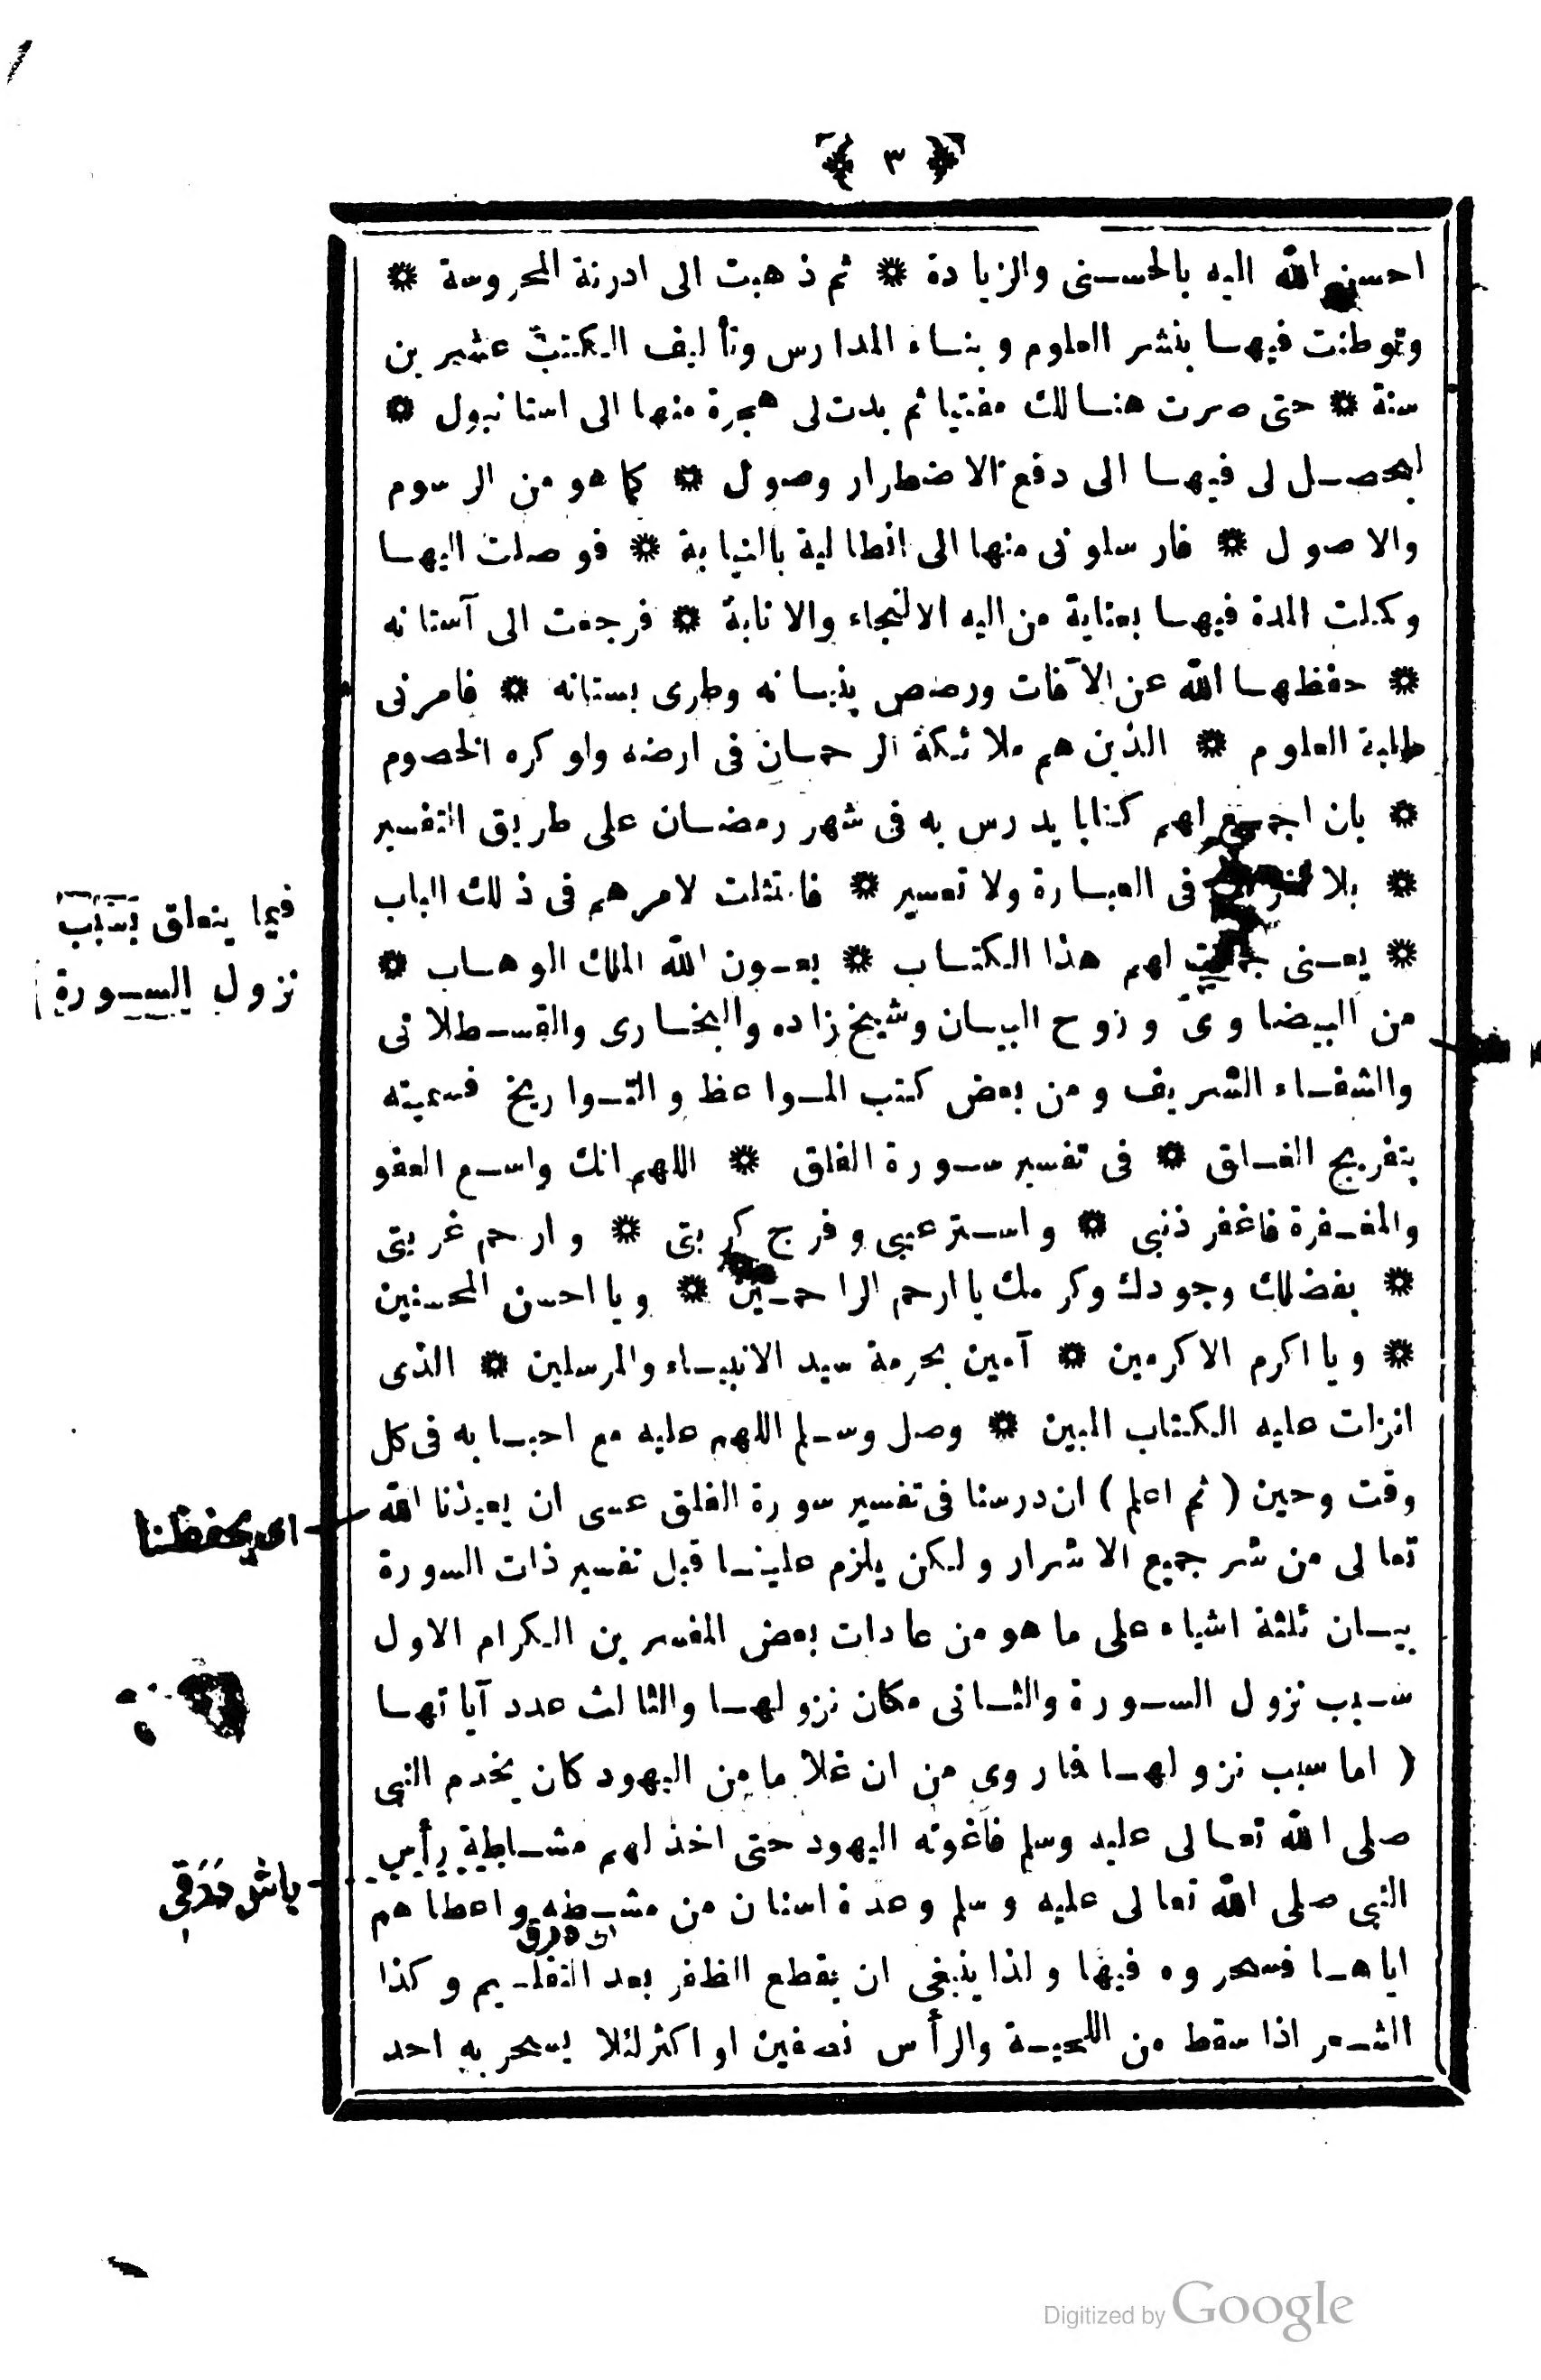 ٣
احسن الله اليه بالحسنى والزيادة * ثم ذهبت الى ادرنة المحروسة *
وتوطنت فيها بنشر العلوم وبناء المدارس وتأليف الكتب عشرين
سنة * حتى صرت هنالك مفتيا ثم بدت لى هجرة منها الى استانبول *
ليحصل لى فيها الى دفع الاضطرار وصول * كما هو من الرسوم
والاصول * فارسلونى منها الى انطالية بالنيابة * فوصلت اليها
وكملت المدة فيها بعناية من اليه الالتجاء والانابة * فرجعت الى آستانه
* حفظها الله عن الآفات ورصص بنيانه وطرى بستانه * فامرنى
طلبة العلوم * الذين هم ملائكة الرحمان فى ارضه ولو كره الخصوم
* بان اجمع لهم كتابا يدرس به فى شهر رمضان على طريق التفسير
* بلا فى العبارة ولا تعسير * فامتثلت لامرهم فى ذلك الباب
* يعنى جمعت لهم هذا الكتاب * بعون الله الملك الوهاب *
من البيضاوى وروح البيان وشيخ زاده والبخارى والقسطلانى
والشفاء الشريف ومن بعض كتب المواعظ والتواريخ فسميته
بتفريج الغلق * فى تفسير سورة الفلق * اللهم انك واسع العفو
والمغفرة فاغفر ذنبى * واستر عيبى وفرج كربتى * وارحم غربتى
* بفضلك وجودك وكرمك يا ارحم الراحمين * ويا احسن المحسنين
* ويا اكرم الاكرمين * آمين بحرمة سيد الانبياء والمرسلين * الذى
انزلت عليه الكتاب المبين * وصل وسلم اللهم عليه مع احبابه فى كل
وقت وحين ( ثم اعلم ) ان درسنا فى تفسير سورة الفلق عسى ان يعيذنا الله
تعالى من شر جميع الاشرار ولكن يلزم علينا قبل تفسير ذات السورة
بيان ثلثة اشياء على ما هو من عادات بعض المفسرين الكرام الاول
سبب نزول السورة والثانى مكان نزولها والثالث عدد آياتها
( اما سبب نزولها فما روى من ان غلاما من اليهود كان يخدم النبى
صلى الله تعالى عليه وسلم فاغوته اليهود حتى اخذ لهم مشاطة رأس
النبى صلى الله تعالى عليه وسلم وعدة اسنان من مشطه واعطاهم
اياها فسحروه فيها ولذا ينبغى ان يقطع الظفر بعد التقليم وكذا
الشعر اذا سقط من اللحية والرأس نصفين او اكثر لئلا يسحر به احد
فيما يتعلق بسبب
نزول السورة
اى يحفظنا
Digitized by Google